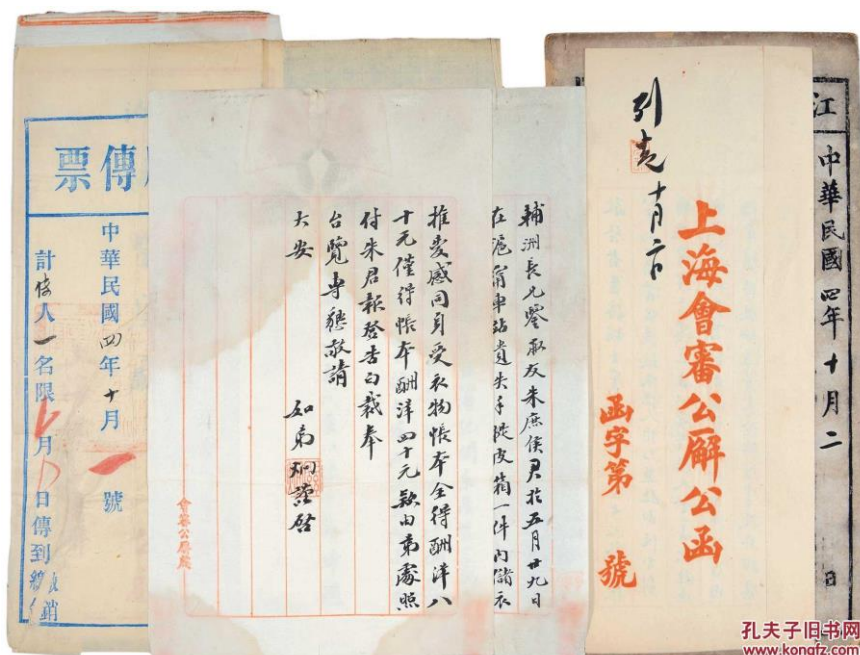 江
中華民國四年十月二
日
列
十月
上海會審公廨公函
函字第 號
輔洲長兄鑒敝友朱庶侯君於五月廿九日
在滬甯車站遺失手提皮箱一件內儲衣
推愛感同身受衣物帳本全得酬洋八
十元僅得帳本酬洋四十元款由弟處照
付朱君報登告白裁奉
台覽專懇敬請
大安
如弟炯謹啓
會審公廨處
傳票
中華民國四年十月 號
計傳人一名限 月 日傳到
銷
孔夫子旧书网
www.kongfz.com